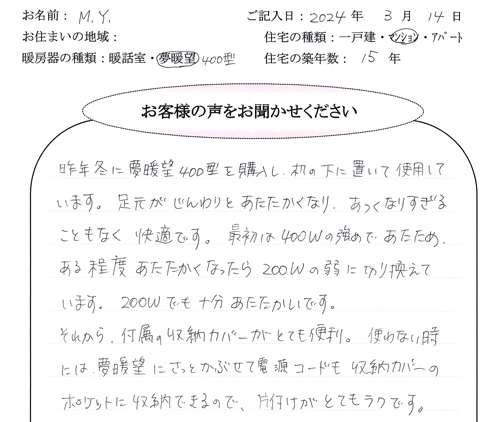 お名前：M.Y. ご記入日：2024年 3月 14日
お住まいの地域： 住宅の種類：一戸建・マンション・アパート
暖房器の種類：暖話室・夢暖望 400型 住宅の築年数：15年
お客様の声をお聞かせください
昨年冬に夢暖望400型を購入し、机の下に置いて使用して
います。足元がじんわりとあたたかくなり、あつくなりすぎる
こともなく快適です。最初は400Wの強めであたため、
ある程度あたたかくなったら200Wの弱に切り換えて
います。200Wでも十分あたたかいです。
それから、付属の収納カバーがとても便利。使わない時
には、夢暖望にさっとかぶせて電源コードも収納カバーの
ポケットに収納できるので、片付けがとてもラクです。